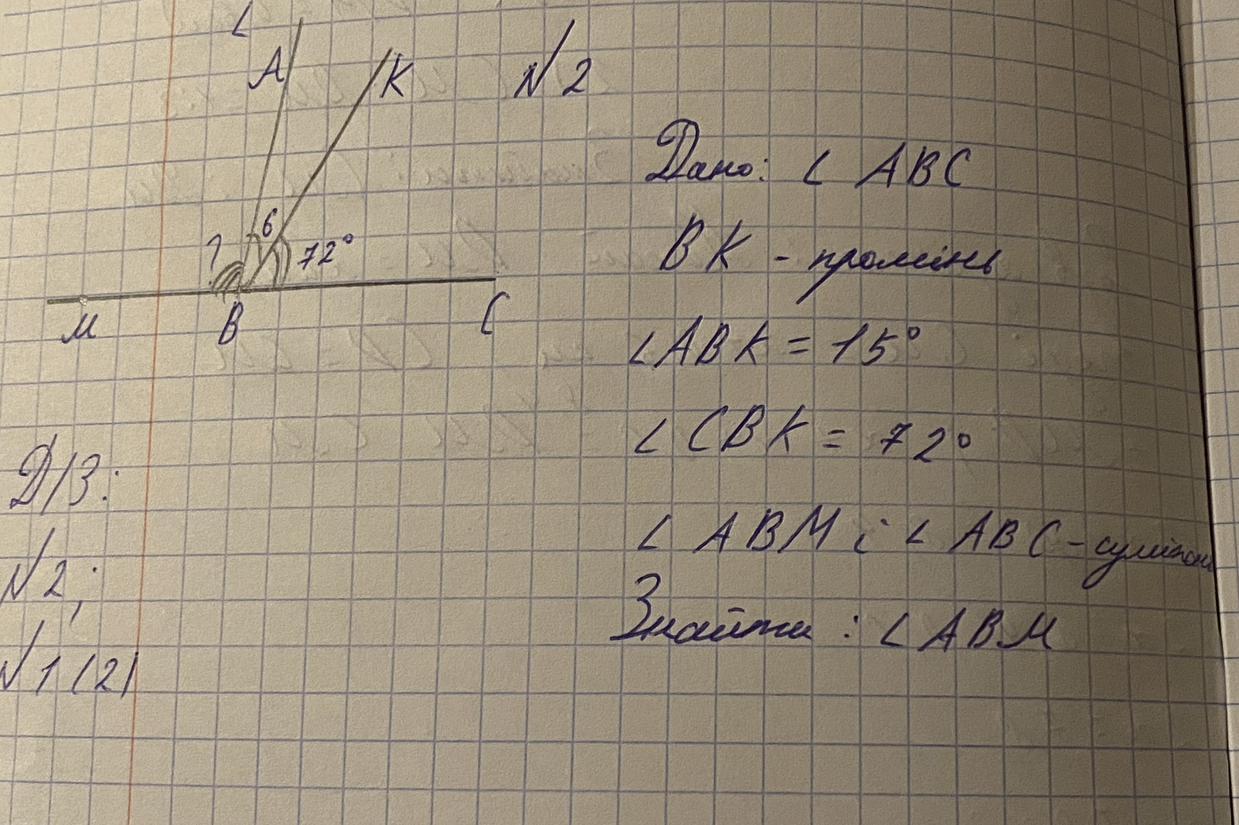 L
A
K
N2
Дано: ∠ ABC
6
72°
?
BK - промінь
M
B
C
∠ABK = 15°
∠ CBK = 72°
Д/З:
∠ ABM і ∠ ABC - суміжні
N2;
Знайти: ∠ ABM
N1(2)